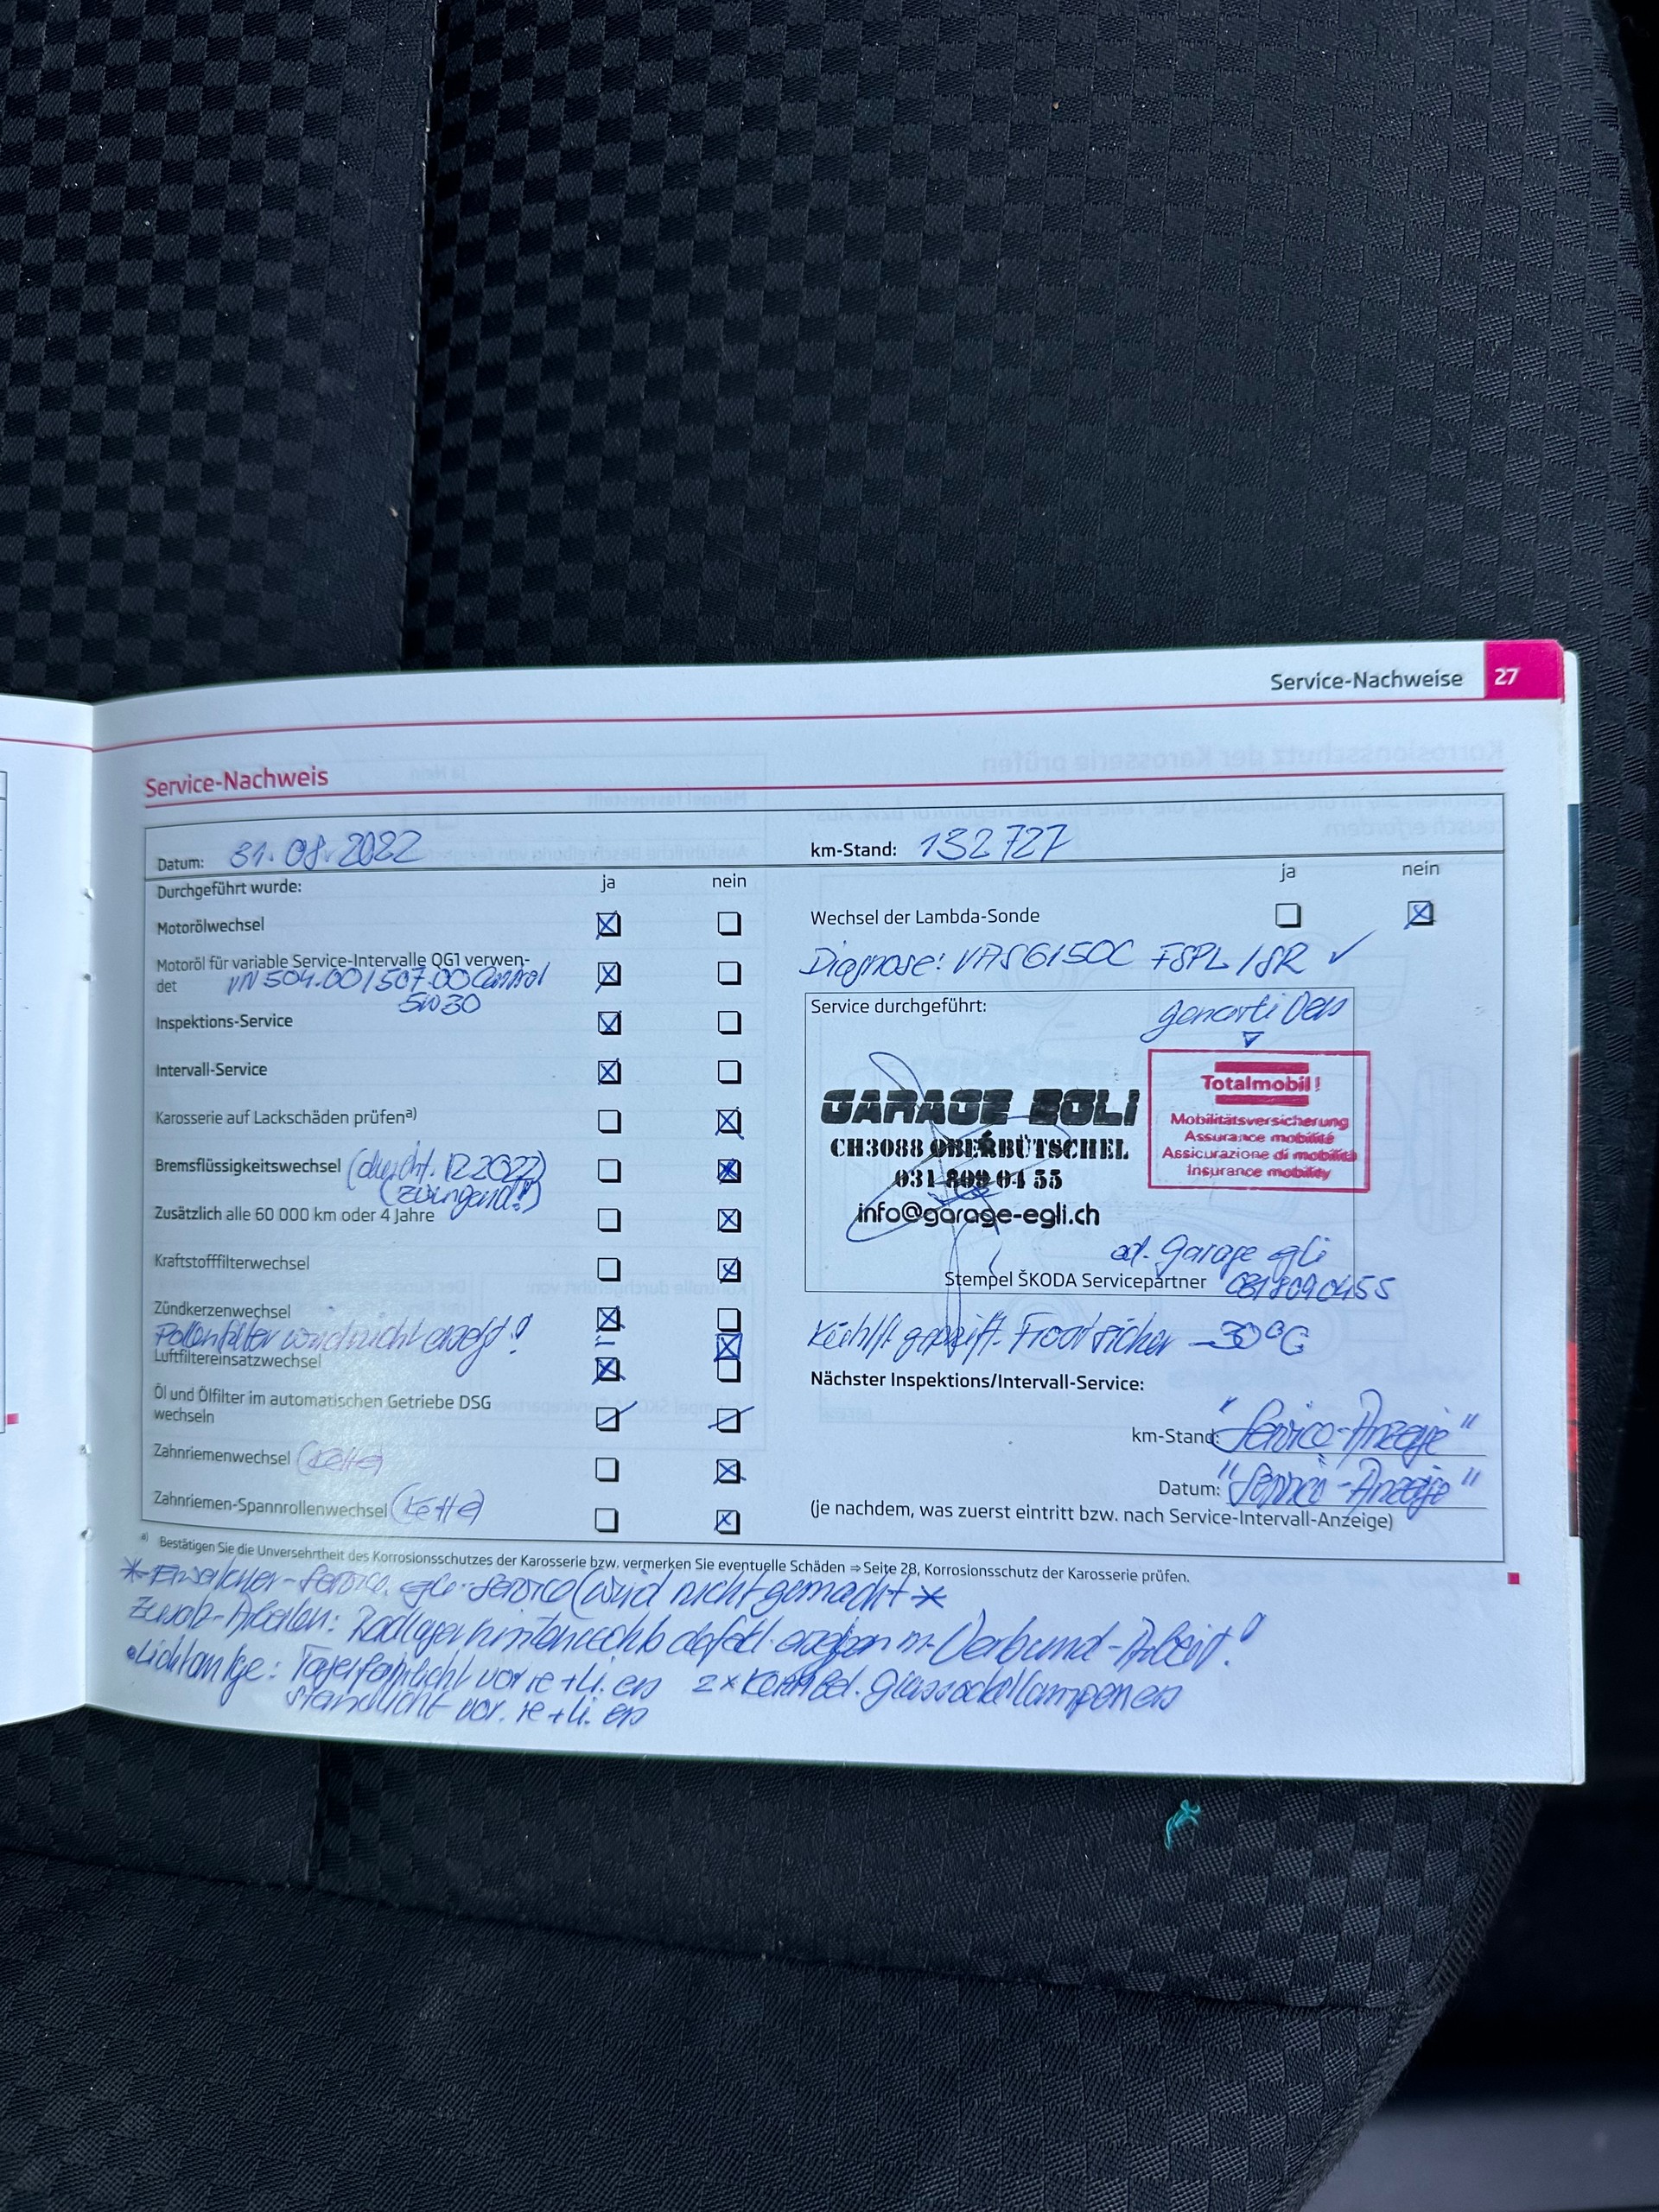 Service-Nachweise 27
Service-Nachweis
Datum: 31.08.2022
km-Stand: 132727
Durchgeführt wurde:
ja nein
Motorölwechsel
Motoröl für variable Service-Intervalle QG1 verwen-
det VW 504.00/507.00
5W30
Inspektions-Service
Intervall-Service
Karosserie auf Lackschäden prüfen a)
Bremsflüssigkeitswechsel 12.2022)
(zwingend!!)
Zusätzlich alle 60 000 km oder 4 Jahre
Kraftstofffilterwechsel
Zündkerzenwechsel
Pollenfilter nicht ersetzt!
Luftfiltereinsatzwechsel
Öl und Ölfilter im automatischen Getriebe DSG
wechseln
Zahnriemenwechsel (Kette)
Zahnriemen-Spannrollenwechsel (Kette)
ja nein
Wechsel der Lambda-Sonde
Diagnose: VAS6150C ✓
Service durchgeführt:
GARAGE EGLI
CH3088 OBERBÜTSCHEL
031 809 04 55
info@garage-egli.ch
Totalmobil!
Mobilitätsversicherung
Assurance mobilité
Assicurazione di mobilità
Insurance mobility
Garage Egli
Stempel ŠKODA Servicepartner 0318090455
geprüft. Frostsicher -30°C
Nächster Inspektions/Intervall-Service:
km-Stand: "Service-Anzeige"
Datum: "Service-Anzeige"
(je nachdem, was zuerst eintritt bzw. nach Service-Intervall-Anzeige)
a) Bestätigen Sie die Unversehrtheit des Korrosionsschutzes der Karosserie bzw. vermerken Sie eventuelle Schäden ⇒ Seite 28, Korrosionsschutz der Karosserie prüfen.
Service (wird nicht gemacht *
Zusatz-Arbeiten: Radlager hinten rechts defekt. Verbund-Arbeit!
Tagesfahrlicht vor re + li. ers 2x Glassockellampen ers
Standlicht vor. re + li. ers